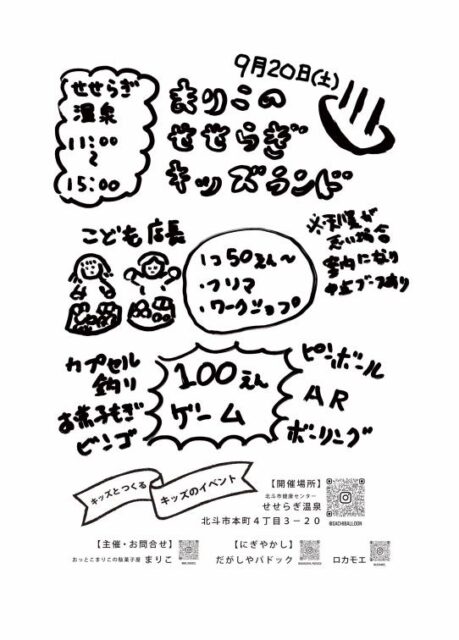 9月20日(土)
せせらぎ
温泉
11:00
〜
15:00
まりこの
せせらぎ
キッズランド
※天候が
悪い場合
室内になり
中止ブースあり
こども店長
1つ50えん〜
・フリマ
・ワークショップ
カプセル
釣り
お菓子もぎ
ビンゴ
100えん
ゲーム
ピンボール
AR
ボーリング
キッズとつくる
キッズのイベント
【開催場所】
北斗市健康センター
せせらぎ温泉
北斗市本町4丁目3−20
@SACHIBALLOON
【主催・お問合せ】
おっとこまりこの駄菓子屋 まりこ
【にぎやかし】
だがしやパドック
ロカモエ